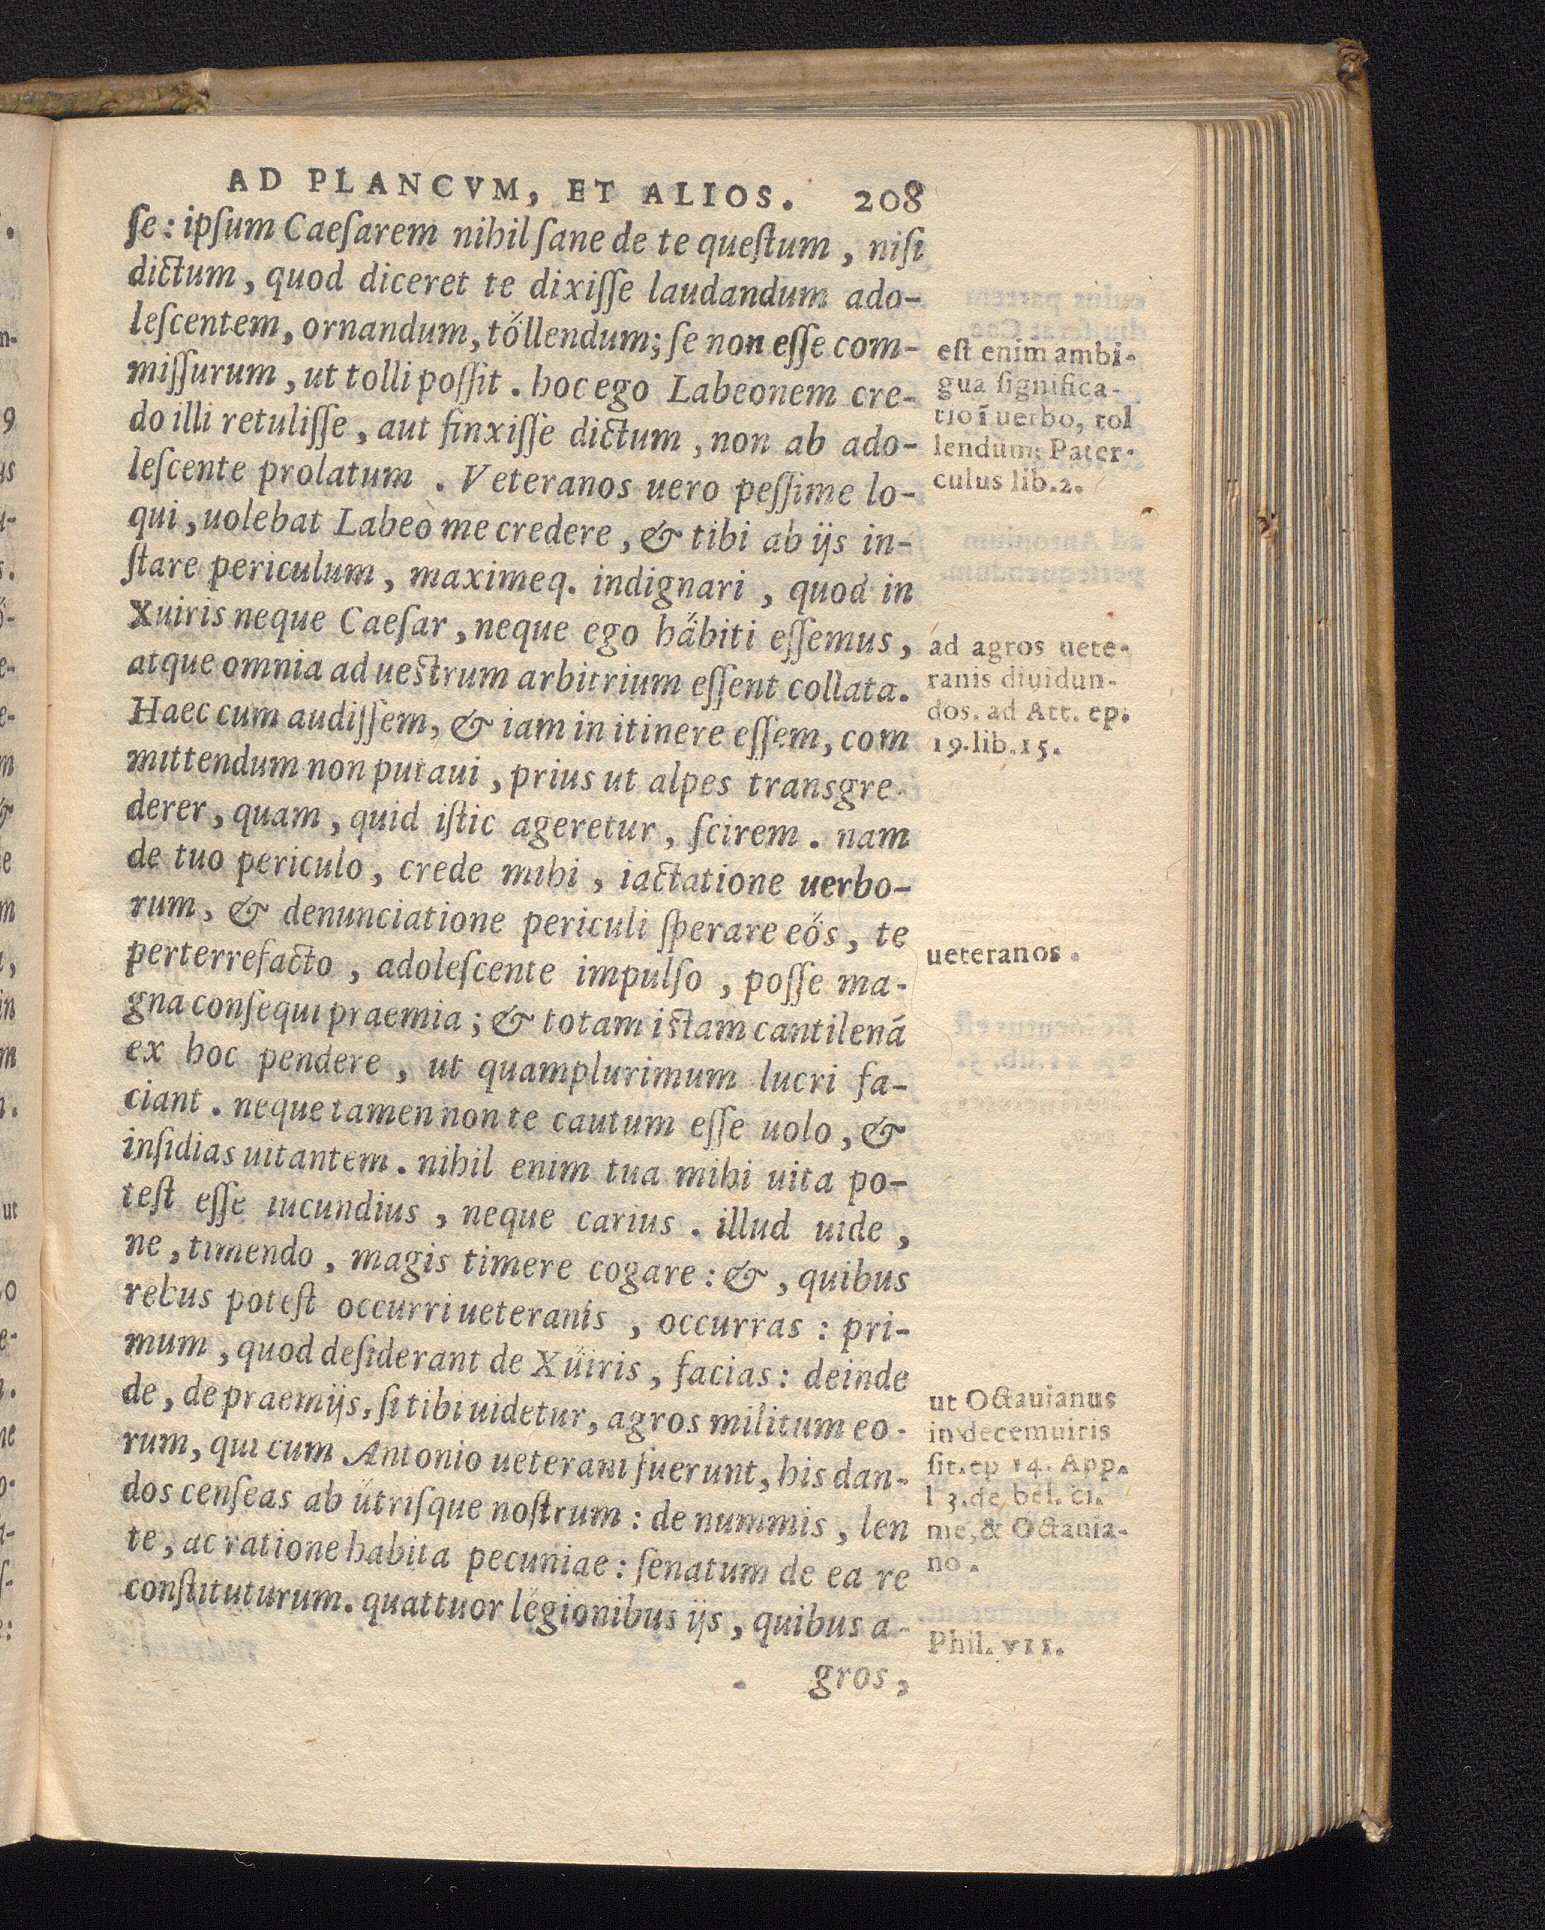 AD PLANCVM, ET ALIOS. 208
ſe: ipſum Caeſarem nihil ſane de te queſtum, niſi
dictum, quod diceret te dixiſſe laudandum ado-
leſcentem, ornandum, tőllendum; ſe non eſſe com-
miſſurum, ut tolli poſſit. hoc ego Labeonem cre-
do illi retuliſſe, aut finxiſſe dictum, non ab ado-
leſcente prolatum. Veteranos uero peſſime lo-
qui, uolebat Labeo me credere, & tibi ab ijs in-
ſtare periculum, maximeq. indignari, quod in
Xuiris neque Caeſar, neque ego ha̋biti eſſemus,
atque omnia ad uestrum arbitrium eſſent collata.
Haec cum audiſſem, & iam in itinere eſſem, com
mittendum non putaui, prius ut alpes transgre-
derer, quam, quid iſtic ageretur, ſcirem. nam
de tuo periculo, crede mihi, iactatione uerbo-
rum, & denunciatione periculi ſperare eős, te
perterrefacto, adoleſcente impulſo, poſſe ma-
gna conſequi praemia; & totam istam cantilenā
ex hoc pendere, ut quamplurimum lucri fa-
ciant. neque tamen non te cautum eſſe uolo, &
inſidias uitantem. nihil enim tua mihi uita po-
teſt eſſe iucundius, neque carius. illud uide,
ne, timendo, magis timere cogare: &, quibus
rebus poteſt occurri ueteranis, occurras: pri-
mum, quod deſiderant de Xűiris, facias: deinde
de, de praemijs, ſi tibi uidetur, agros militum eo-
rum, qui cum Antonio ueterani fuerunt, his dan-
dos cenſeas ab űtriſque noſtrum: de nummis, len
te, ac ratione habita pecuniae: ſenatum de ea re
conſtituturum. quattuor le̋gionibus ijs, quibus a-
gros,
eſt enim ambi-
gua ſignifica-
tio ī uerbo, tol
lendum: Pater-
culus lib.2.
ad agros uete-
ranis diuidun-
dos. ad Att. ep.
19.lib.15.
ueteranos.
ut Octauianus
in decemuiris
ſit. ep 14. App.
l 3. de bel. ci.
me, & Octauia-
no.
Phil. VII.